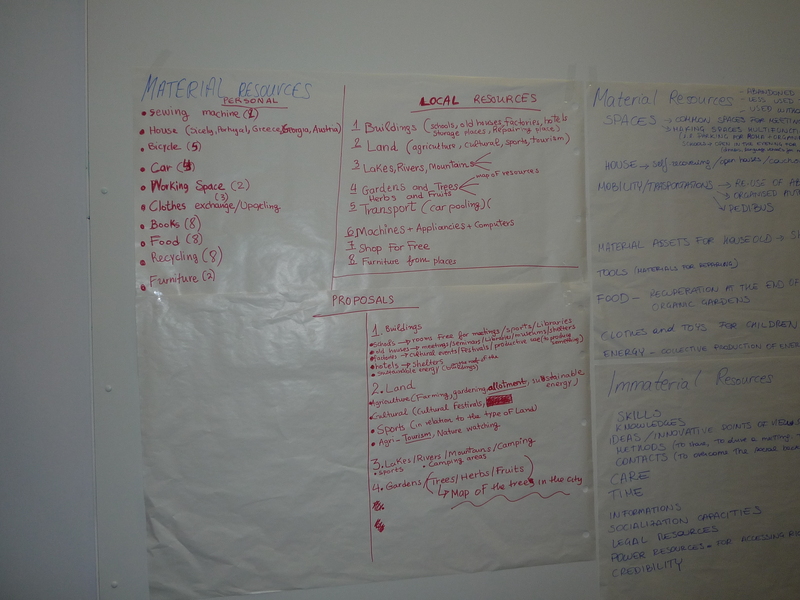 MATERIAL RESOURCES
PERSONAL
• Sewing machine (2)
• House (Sicely, Portugal, Greece, Georgia, Austria)
• Bicycle (5)
• Car (4)
• Working Space (2)
• Clothes exchange/Upcycling (3)
• Books (8)
• Food (8)
• Recycling (8)
• Furniture (2)
LOCAL RESOURCES
1 Buildings (schools, old houses, factories, hotels
storage places, Repairing place)
2 Land (agricultury, cultural, sports, tourism)
3 Lakes, Rivers, Mountains
map of resources
4 Gardens and Trees
Herbs and Fruits
5 Transport (car pooling) (
6 Machines + Appliancies + Computers
7 Shop For Free
8 Furniture from places
PROPOSALS
1. Buildings
schools → rooms Free for meetings/sports/Libraries
old houses → meetings/seminars/Libraries/museums/shelters
factories → cultural events/Festivals/productive use (to produce something)
hotels → shelters
sustainable energy (buildings)
2. Land
Agriculture (Farming, gardening, allotment, sustainable energy,)
Cultural (Cultural Festivals,
Sports (in relation to the type of Land)
Agri-Tourism, Nature watching
3. Lakes/Rivers/Mountains/Camping
• sports • Camping areas
4. Gardens (Trees/Herbs/Fruits)
↳ Map of the trees in the city
Material Resources
- ABANDONED
- LESS USED
- USED
SPACES → COMMON SPACES FOR MEETING
MAKING SPACES MULTIFUNCTI
HOUSE → self recovering/open houses/
MOBILITY/ → RE-USE OF
→ ORGANISED
→ PEDIBUS
MATERIAL ASSETS FOR HOUSEOLD →
TOOLS (MATERIALS FOR REPAIRING)
FOOD - RECUPERATION AT THE END OF
ORGANIC GARDENS
CLOTHES and TOYS FOR CHILDREN
ENERGY - COLLECTIVE PRODUCTION OF
Immaterial Resources
SKILLS
KNOWLEDGES
IDEAS / INNOVATIVE POINTS OF
METHODS (to have, to drive a meeting
CONTACTS (TO OVERCOME THE
CARE
TIME
INFORMATIONS
SOCIALIZATION CAPACITIES
LEGAL RESOURCES
POWER RESOURCES - FOR ACCESSING
CREDIBILITY